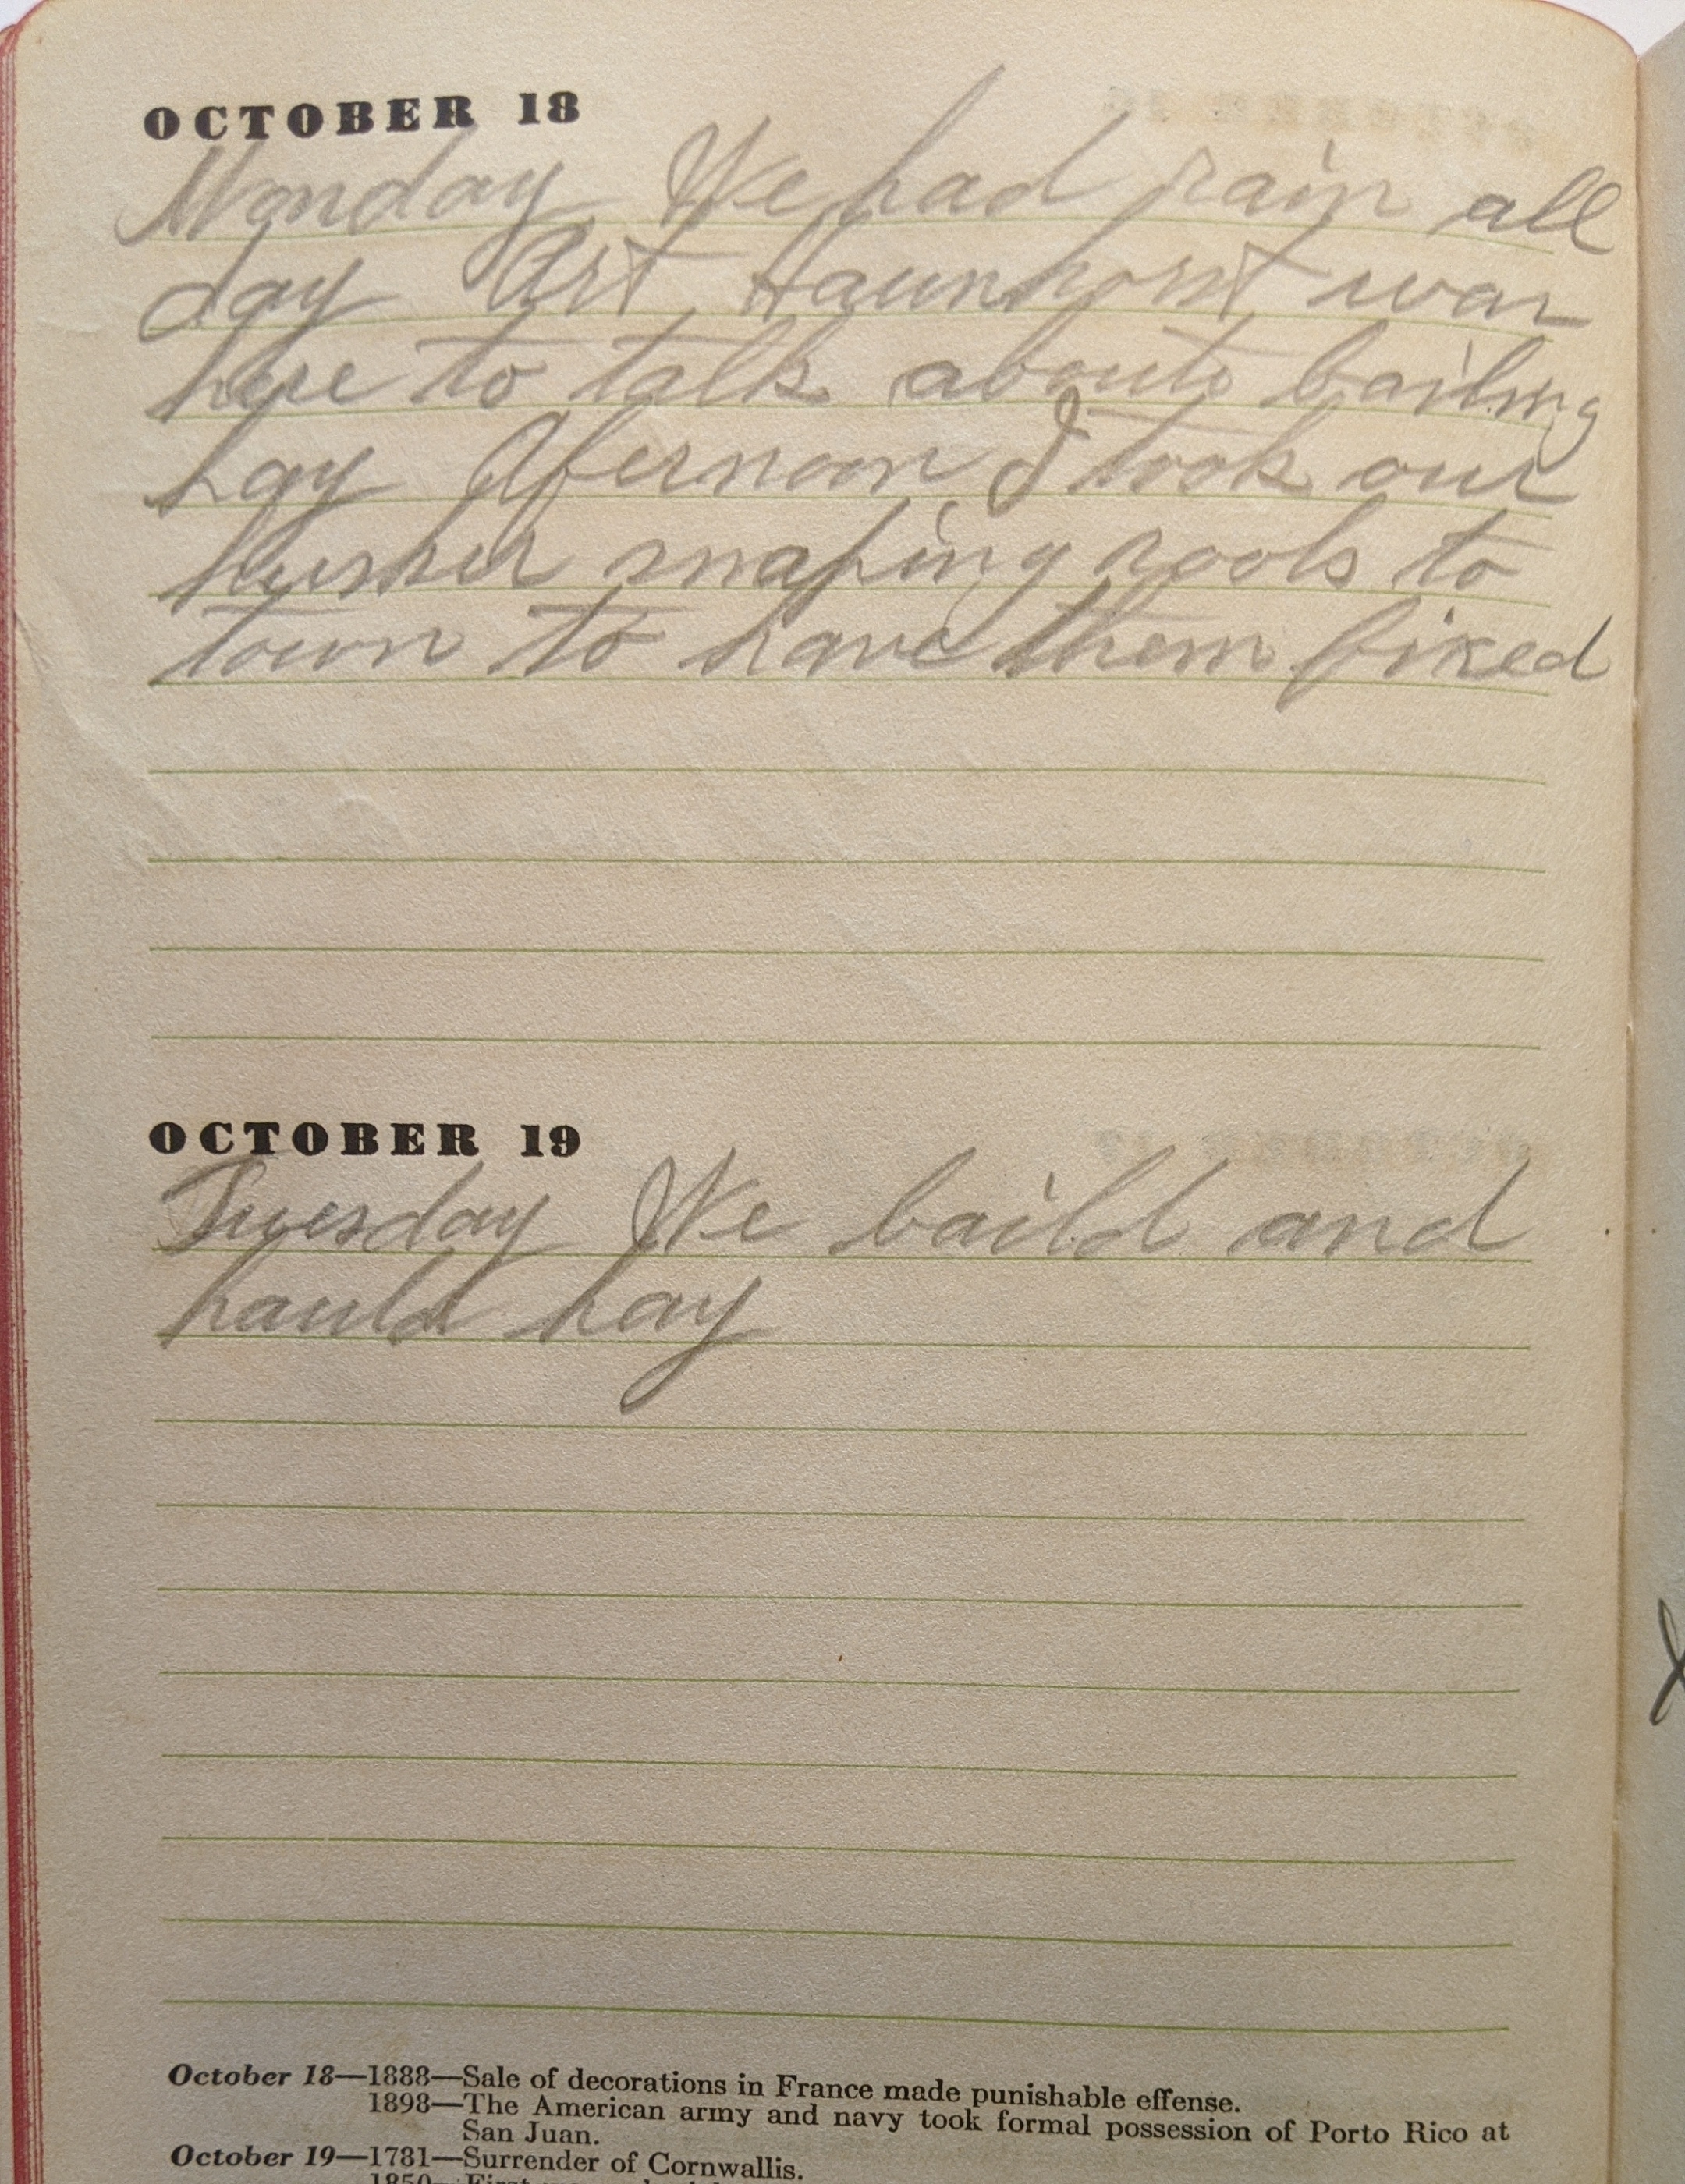 OCTOBER 18
Monday We had rain all
day Art Haunhorst was
here to talk about bailing
hay Afernoon I took our
husker snaping rools to
town to have them fixed
OCTOBER 19
Tuesday We baild and
hauld hay
October 18—1888—Sale of decorations in France made punishable effense.
1898—The American army and navy took formal possession of Porto Rico at
San Juan.
October 19—1781—Surrender of Cornwallis.